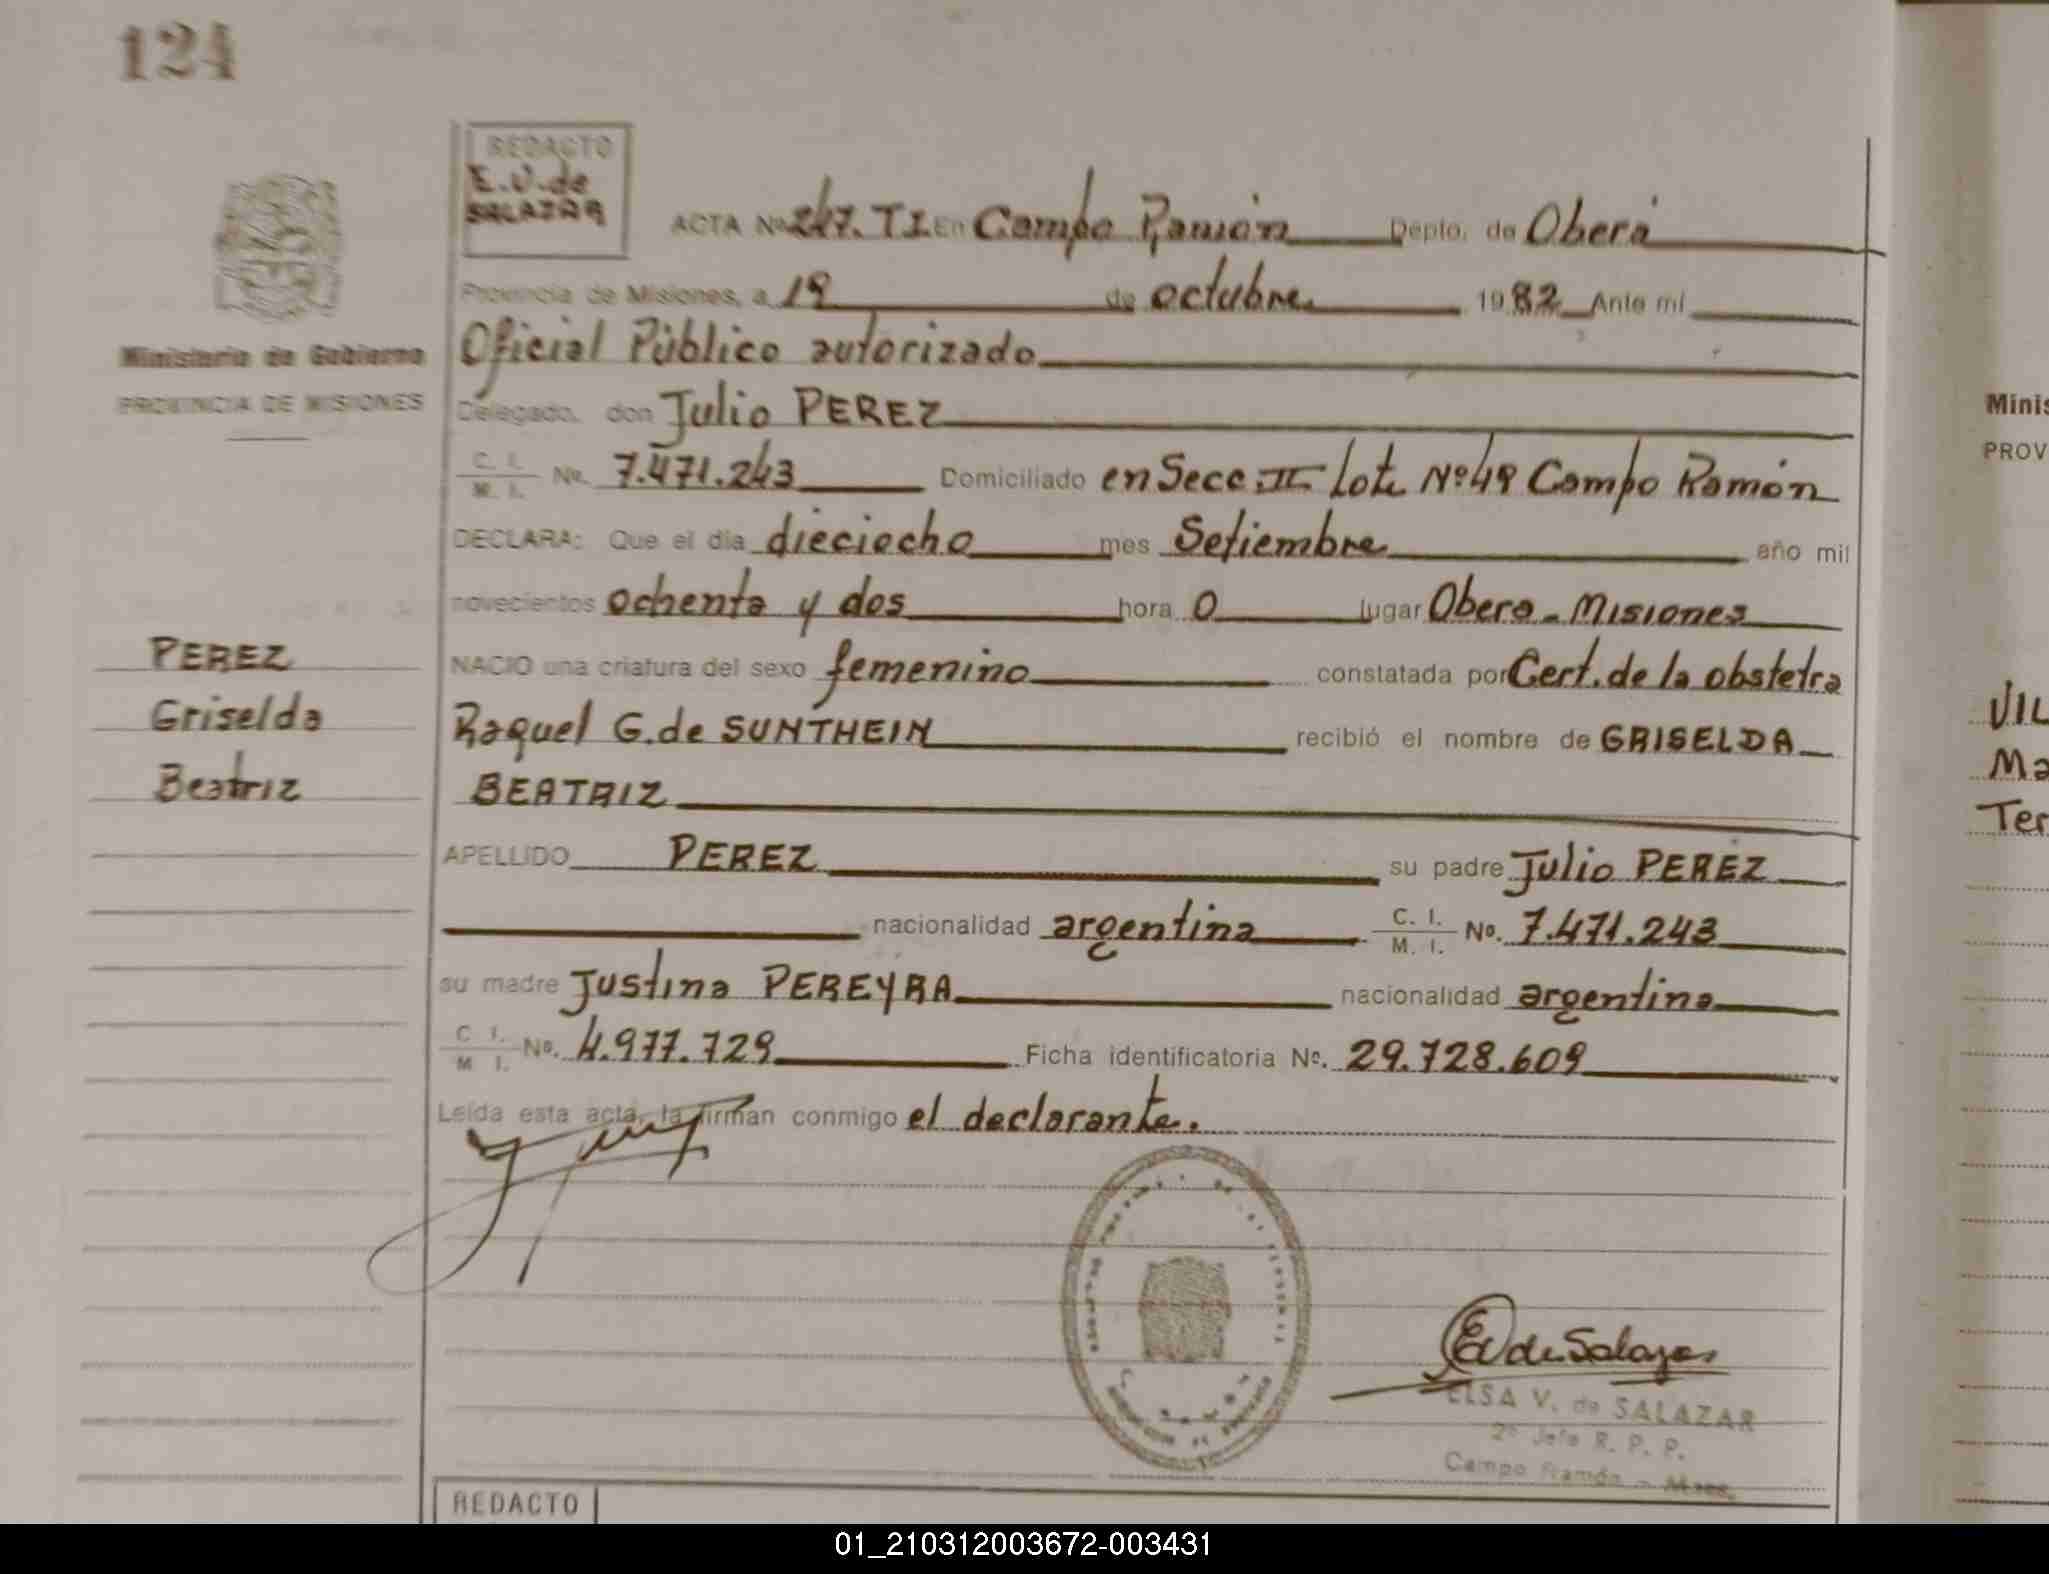 124
REDACTO
E.V. de
SALAZAR
ACTA Nº 247. TI. En Campo Ramón Depto. de Oberá
Provincia de Misiones, a 19 de octubre 1982 Ante mí
Ministerio de Gobierno
PROVINCIA DE MISIONES
Oficial Público autorizado
Delegado, don Julio PEREZ
C. I. M. I. No. 7.471.243 Domiciliado en Secc II Lote Nº 49 Campo Ramón
DECLARA: Que el día dieciocho mes Setiembre año mil
novecientos ochenta y dos hora 0 lugar Obera - Misiones
PEREZ
Griselda
Beatriz
NACIO una criatura del sexo femenino constatada por Cert. de la obstetra
Raquel G. de SUNTHEIN recibió el nombre de GRISELDA
BEATRIZ
APELLIDO PEREZ su padre Julio PEREZ
nacionalidad argentina C. I. M. I. No. 7.471.243
su madre Justina PEREYRA nacionalidad argentina
C. I. M. I. No. 4.977.729 Ficha identificatoria No. 29.728.609
Leída esta acta, la firman conmigo el declarante.
EV de Salazar
ELSA V. de SALAZAR
2º Jefe R. P. P.
Campo Ramón - Mnes.
REDACTO
Minis
PROV
VIL
Ma
Ter
01_210312003672-003431